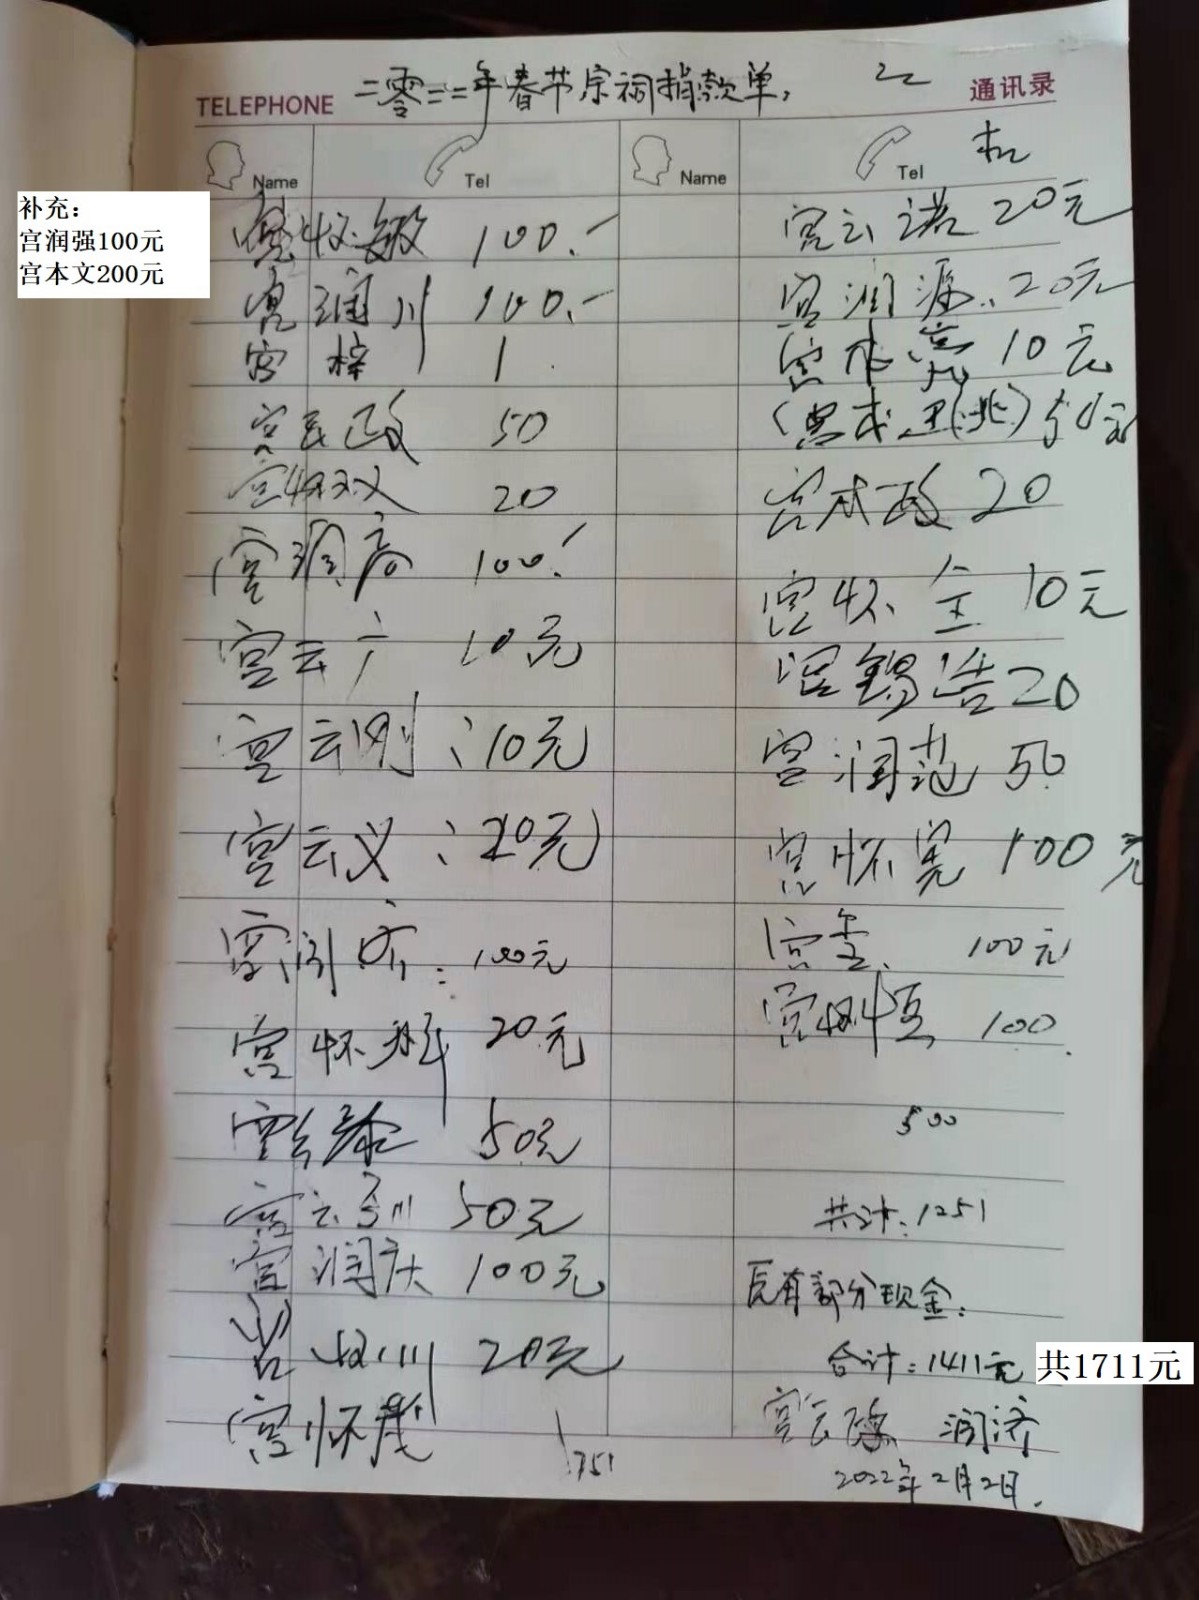 二零二二年春节宗祠捐款单,
TELEPHONE
通讯录
Name
Tel
Name
Tel
补充:
宫润强100元
宫本文200元
宫怀敏 100.-
宫润川 100.-
宫梓 1.
宫民政 50
宫怀双 20
宫润高 100.
宫云广 10元
宫云刚:10元
宫云义:20元
宫润济:100元
宫怀胜 20元
50元
宫云 50元
宫润庆 100元
宫 川 20元
宫怀茂
751
宫云诺 20元
宫润源 20元
宫本亮 10元
50元
宫本政 20
宫怀全 10元
宫锡浩 20
宫润范 50
宫怀宪 100元
宫奎 100元
宫树恒 100
500
共计:1251
原有部分现金:
合计:1411元
共1711元
宫云 润济
2022年2月2日.